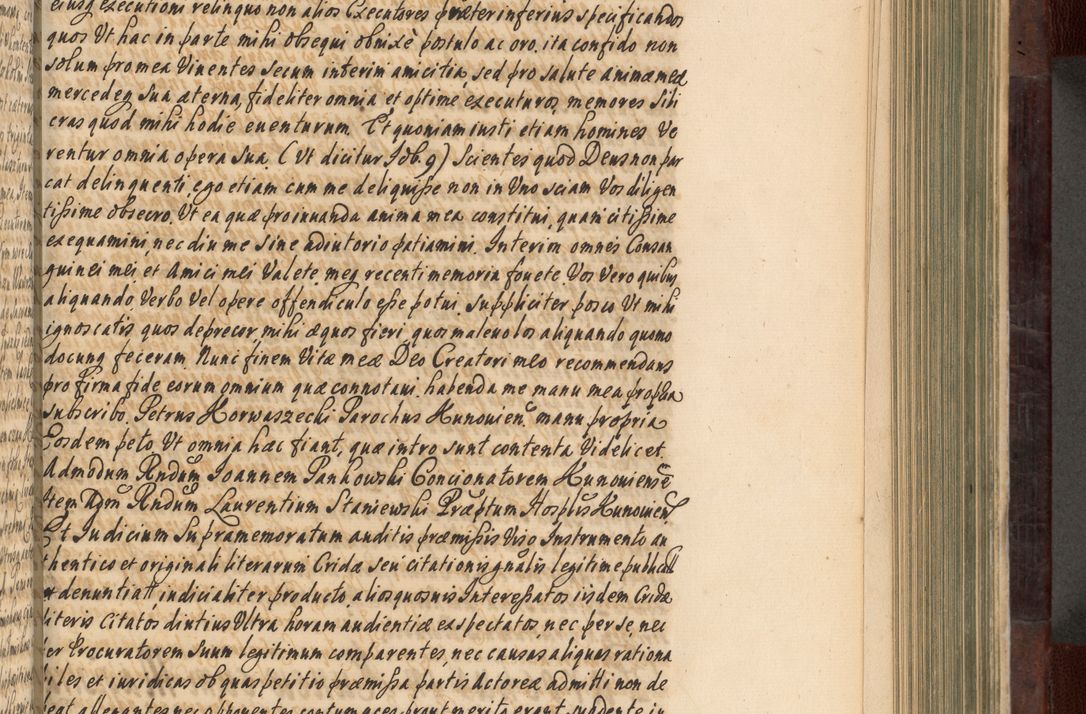 eiusq executioni relinquo non alios Executores præter inferius specificandos
quos Ut hac in parte mihi obsequi obnixè postulo ac oro. ita confido non
solum pro mea Viventes secum interim amicitia, sed pro salute animæ meæ
mercedeq sua æterna, fideliter omnia et optimé executuros, memores sibi
cras quod mihi hodie euenturum. Et quoniam iusti etiam homines Ve
rentur omnia opera sua (Ut dicitur Iob. 9) scientes quod Deus non par
cat delinquenti, ego etiam cum me deliquisse non in Uno sciam Vos diligen
tissime obsecro. Ut ea quæ pro iuuanda anima mea constitui, quam citissime
exequamini, nec diu me sine adiutorio patiamini. Interim omnes Consan
guinei mei, et Amici mei Valete, meq recenti memoria fouete. Vos Vero quibus
aliquando Verbo Vel opere offendiculo esse potui suppliciter posco Ut mihi
ignoscatis quos deprecor, mihi æquos fieri, quos maleuolos aliquando quomo
docunq feceram. Nunc finem Vitæ meæ Deo Creatori meo recommendans
pro firma fide eorum omnium quæ connotaui, habenda me manu mea propria
subscribo. Petrus Horwaszecki Parochus Hunouien. manu propria
Eosdem peto Ut omnia hæc fiant, quæ intro sunt contenta Videlicet.
Admodum Rndum Joannem Pankowski Concionatorem Hunouiensē
Item Adm Rndum Laurentium Staniewski Præptum Hosplis Hunouien
Et Iudicium supramemoratum auditis præmissis Viso Instrumento au
thentico et originali literarum Cridæ seu citationis gnalis legitime publicati
denuntiat, iudicialiter producto, alios quosuis Interessatos iisdem Cridæ
literis Citatos diutius Ultra horam audientiæ expectatos, nec per se, nec
per Procuratorem suum legitimum comparentes, nec causas aliquas rationa
biles et iuridicas ob quas petitio præmissa partis Actoreæ admitti non de
beat allegantes nec opponentes contumaces prout merito erant suadente iu